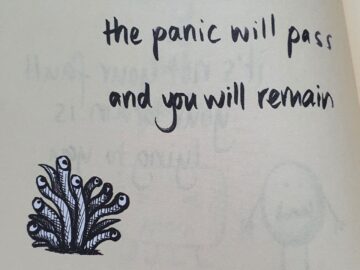 the panic will pass
and you will remain